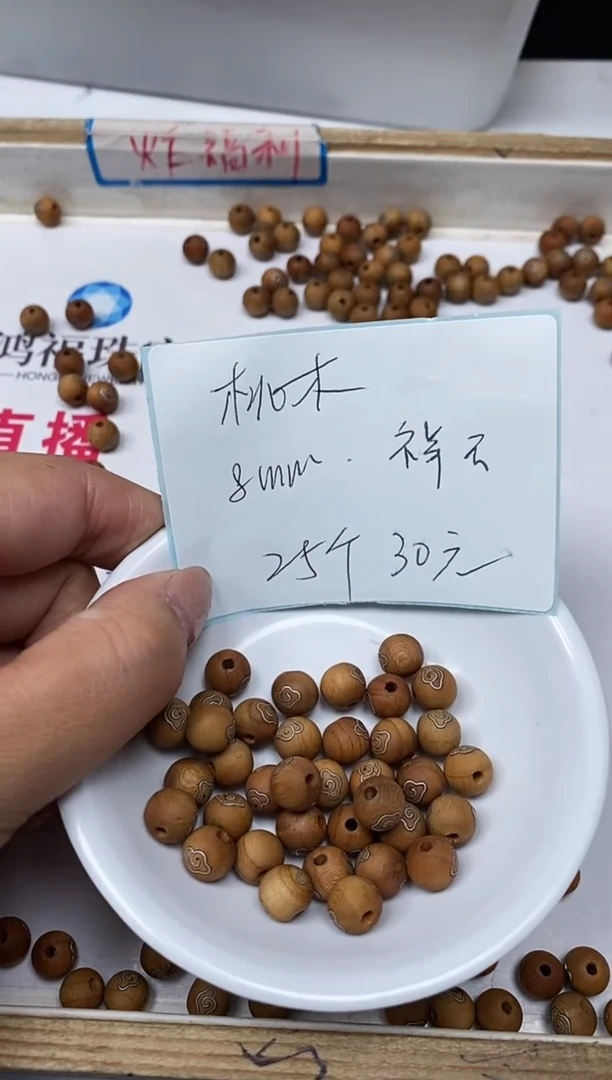 福利
鸿福珠
直播
桃木
8mm. 祥云
25个 30元